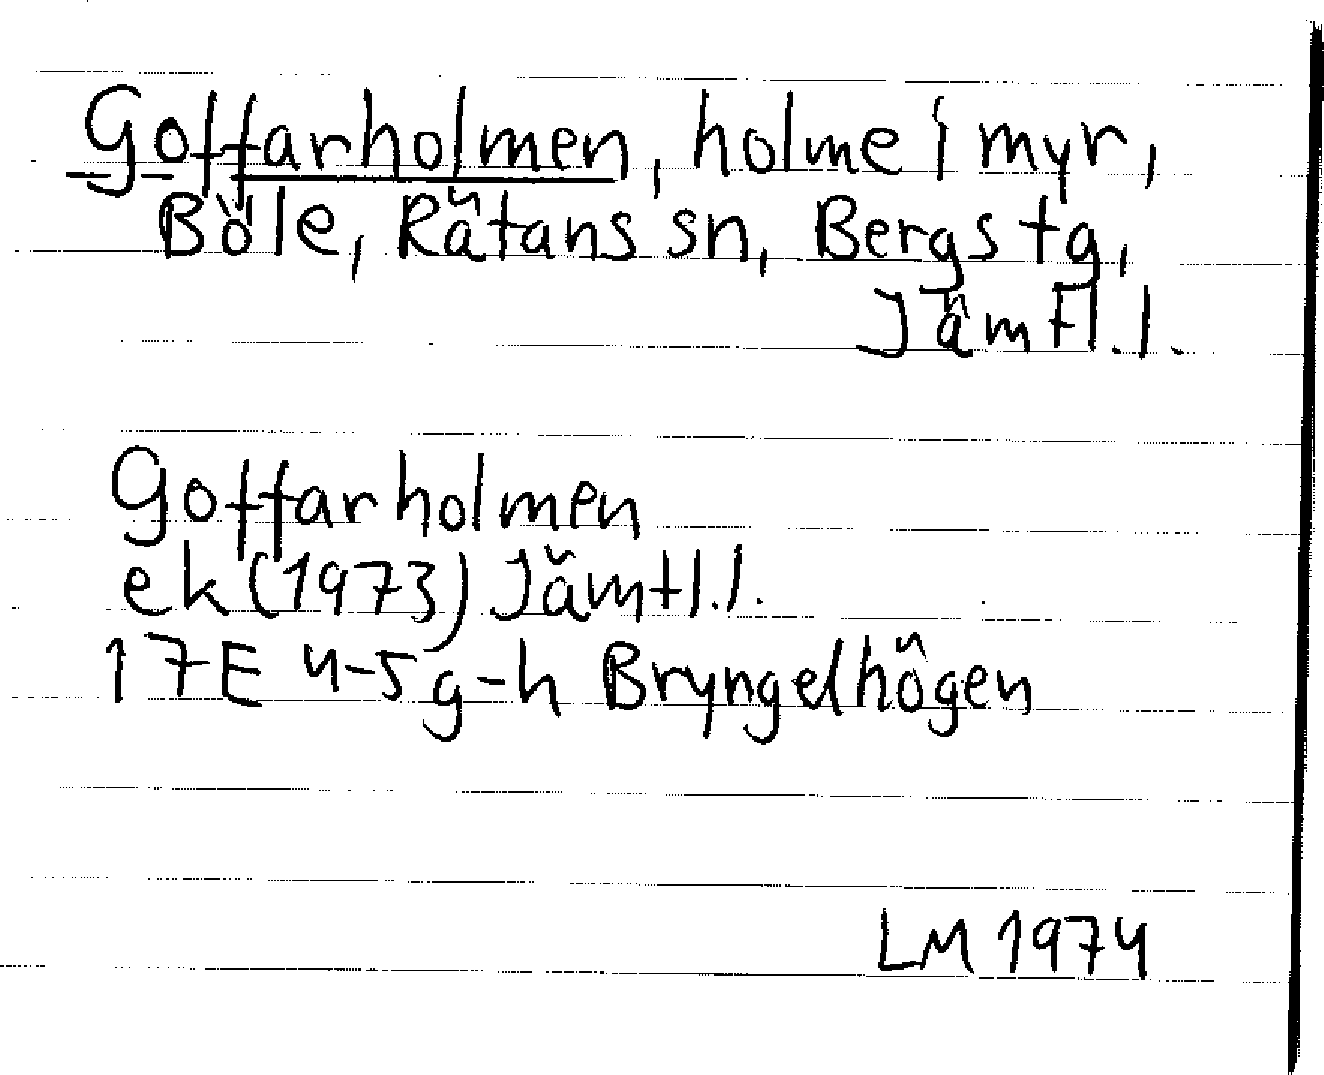 Goffarholmen, holme i myr,
Böle, Rätans sn, Bergs tg,
Jämtl.l.
Goffarholmen
ek (1973) Jämtl.l.
17E 4-5 g-h Bryngelhögen
LM 1974